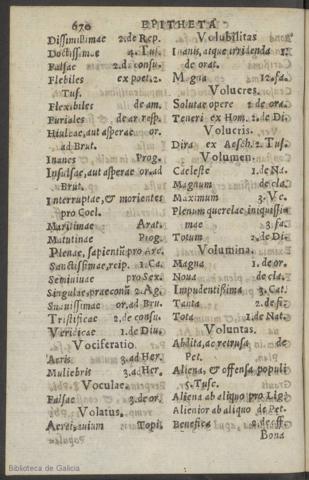 670 EPITHETA
Dissimillimae 2. de Rep.
Doctissimae 4. Tus.
Falsae 2. de consu.
Flebiles ex poet. 2.
Tus.
Flexibiles de am.
Furiales de ar resp.
Hiulcae, aut asperae or.
ad Brut.
Inanes Prog.
Insulsae, aut asperae or. ad
Brut.
Interruptae, & morientes
pro Coel.
Maritimae Arat.
Matutinae Prog.
Plenae, sapientũ pro Arc.
Sanctissimae, reip. 1. Ca.
Semivivae pro Sex.
Singulae, praeconũ 2. Ag.
Suavissimae or. ad Bru.
Tristificae 2. de consu.
Veridicae 1. de Diu.
Vociferatio.
Acris 3. ad Her.
Muliebris 3. ad Her.
Voculae.
Falsae 3. de or.
Volatus.
Aerei, auium Topi.
Volubilitas
Inanis, atque irridenda 1.
de orat.
Magna 12. fa.
Volucres.
Solutae opere 2. de ora.
Teneri ex Hom. 2. de Di.
Volucris.
Dira ex Aesch. 2. Tus.
Volumen.
Caeleste 1. de Na.
Magnum de cla.
Maximum 3. Ve.
Plenum querelae iniquissi=
mae 3. fa.
Totum 2. de Di.
Volumina.
Magna 1. de or.
Noua de cla.
Impudentissima 3. Cat.
Tanta 2. de fi.
Tota 1. de Nat.
Voluntas.
Abdita, ac retrusa de
Pet.
Aliena, & offensa populi
5. Tusc.
Aliena ab aliquo pro Lig.
Alienior ab aliquo de Pet.
Benefica 2. de off.
Bona
Biblioteca de Galicia